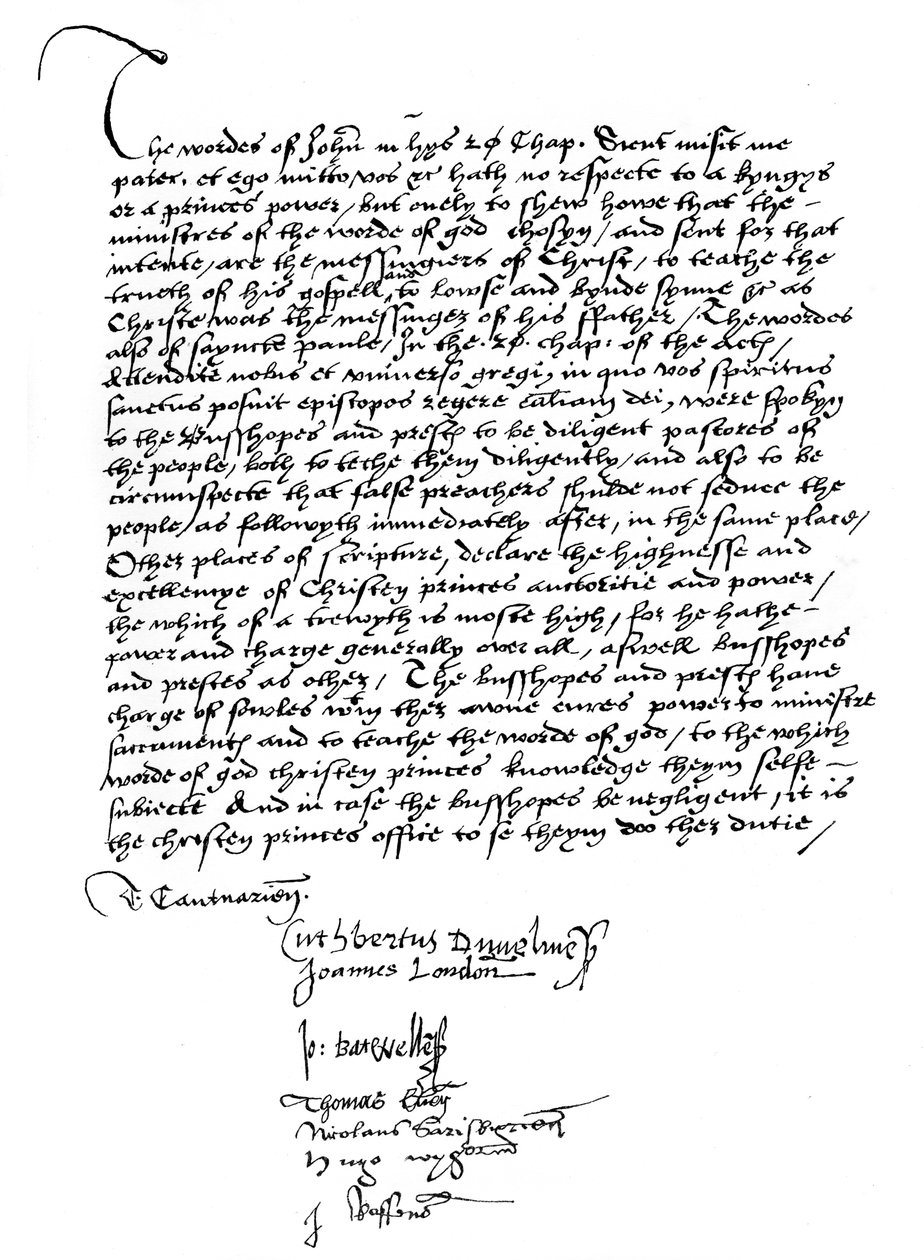 The wordes of John̄ in hys 20 Chap. Sicut misit me
pater, et ego mitto vos &c hath no respecte to a kyngys
or a princes power, but onely to shew howe that the –
ministres of the worde of god chosyn / and sent for that
intente, are the messingiers of Christ, to teache the
trueth of his gospell, and to lowse and bynde synne &c as
Christe was the messinger of his ffather / The wordes
also of sayncte paule, In the .20. chap: of the Actes /
Attendite nobis et vniuerso gregi, in quo vos spiritus
sanctus posuit episcopos regere eccl̄iam dei, were spokyn
to the Busshopes and prestes to be diligent pastores of
the people, both to teche them diligently, and also to be
circumspecte that false preachers shulde not seduce the
people, as followyth immediately after, in the same place,
Other places of scripture, declare the highnesse and
excellencye of Christen princes auctoritie and power /
the which of a trewyth is moste high, for he hathe –
power and charge generally over all, aswell busshopes
and prestes as other / The busshopes and prestes haue
charge of sowles wtin ther awne cures power to ministre
sacramentes and to teache the worde of god / to the which
worde of god christen princes knowledge theym selfe –
subiecte And in case the busshopes be negligent, it is
the christen princes office to se theym doo ther dutie /
T Cantuarien̄.
Cuthbertus Dunelmen̄
Joannes London̄
Jo: batwellen̄
Thomas Elien̄
Nicolaus Sarisburien̄
Hugo wygorn̄
J Roffens̄